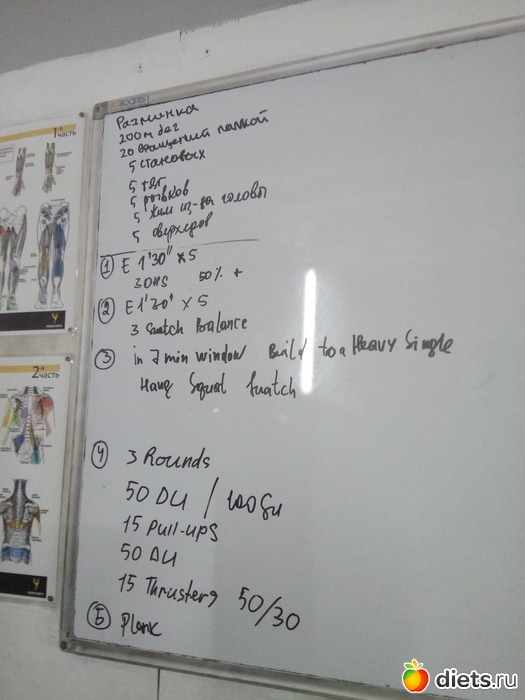 1ая часть
2ая часть
Разминка
200м бег
20 вращений палкой
5 становых
5 тяг
5 рывков
5 жим из-за головы
5 оверхедов
① E 1'30" x 5
3 OHS 50% +
② E 1'30" x 5
3 Snatch Balance
③ in 7 min window Build to a Heavy Single
Hang Squat Snatch
④ 3 Rounds
50 DU / 100 Su
15 Pull-ups
50 DU
15 Thrusters 50/30
⑤ Plank
diets.ru